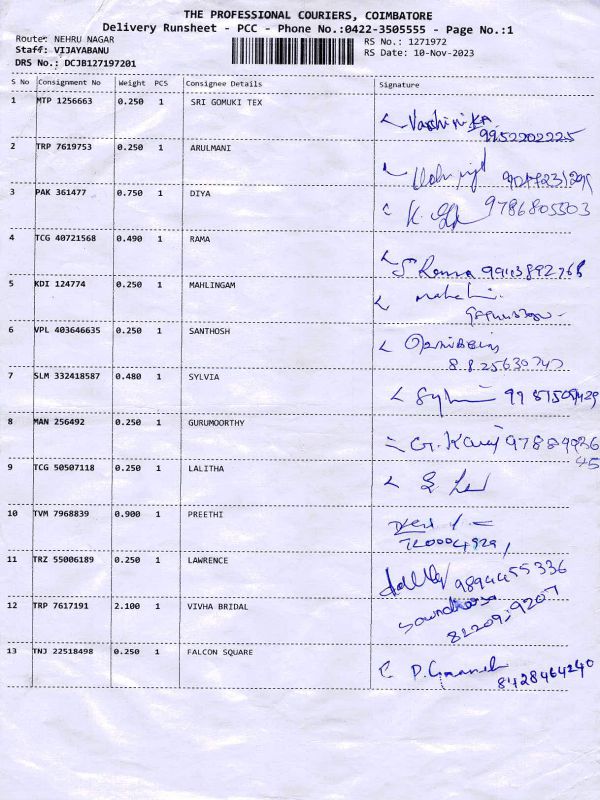 THE PROFESSIONAL COURIERS, COIMBATORE
Delivery Runsheet - PCC - Phone No.:0422-3505555 - Page No.:1
Route: NEHRU NAGAR
RS No.: 1271972
Staff: VIJAYABANU
RS Date: 10-Nov-2023
DRS No.: DCJB127197201
S No Consignment No Weight PCS Consignee Details Signature
1 MTP 1256663 0.250 1 SRI GOMUKI TEX
9952202225
2 TRP 7619753 0.250 1 ARULMANI
3 PAK 361477 0.750 1 DIYA K. 9786805503
4 TCG 40721568 0.490 1 RAMA
S Rama
5 KDI 124774 0.250 1 MAHLINGAM
6 VPL 403646635 0.250 1 SANTHOSH
7 SLM 332418587 0.480 1 SYLVIA
8 MAN 256492 0.250 1 GURUMOORTHY
9 TCG 50507118 0.250 1 LALITHA
10 TVM 7968839 0.900 1 PREETHI
11 TRZ 55006189 0.250 1 LAWRENCE
9894455336
12 TRP 7617191 2.100 1 VIVHA BRIDAL
13 TNJ 22518498 0.250 1 FALCON SQUARE
8428464240